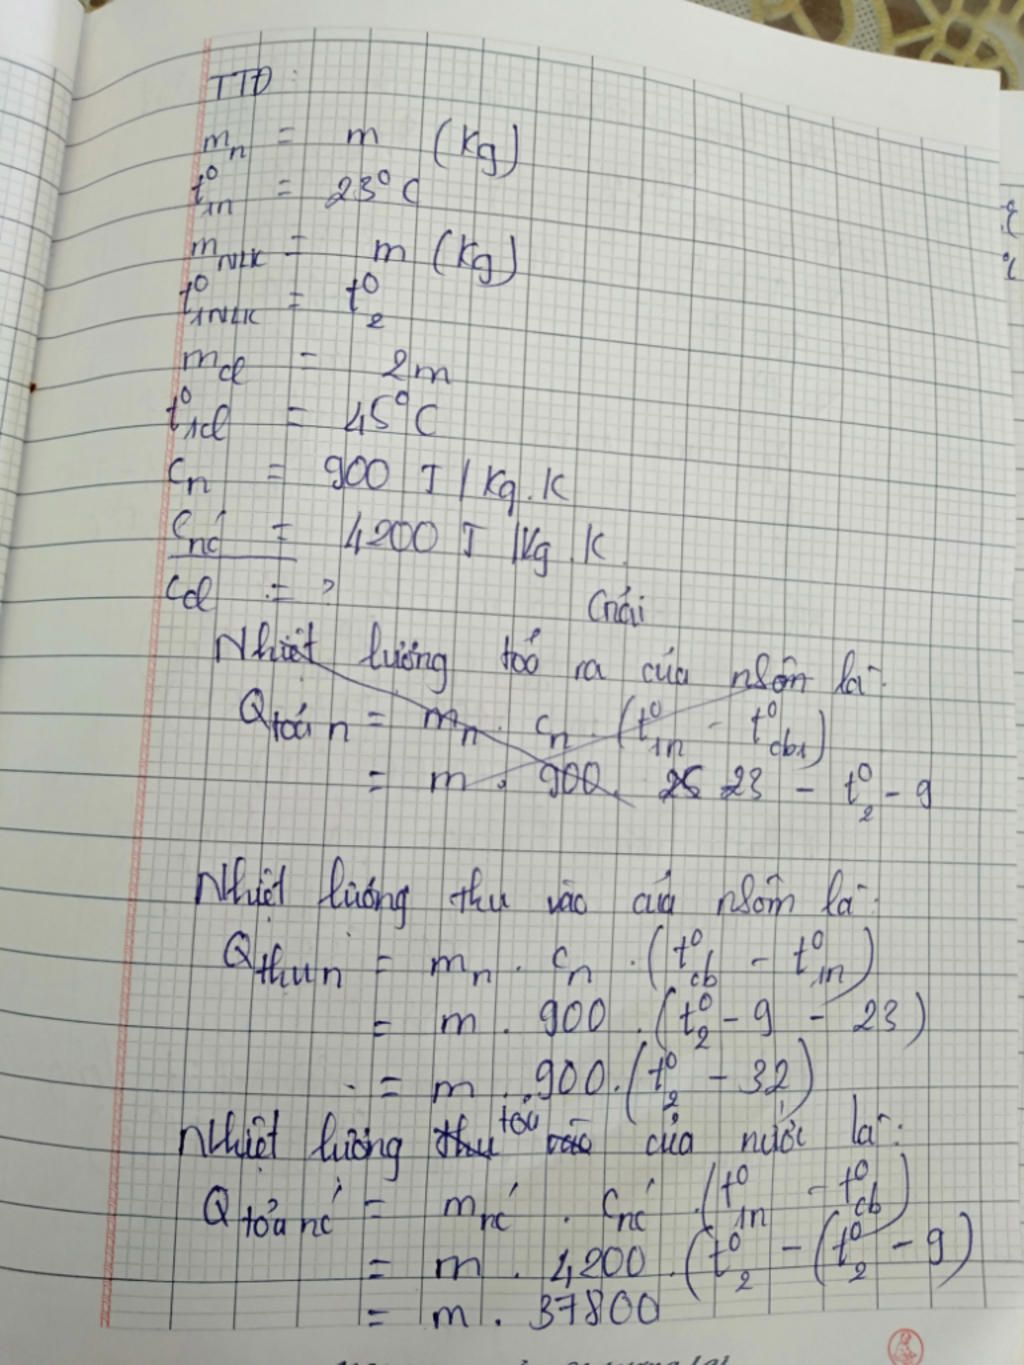 TTĐ :
mn = m (kg)
t⁰1n = 23⁰C
mNLK = m (kg)
t⁰1NLK = t⁰2
mcl = 2m
t⁰1cl = 45⁰C
cn = 900 J/kg.K
cnć = 4200 J/kg.K
ccl = ?
Giải
Nhiệt lượng toả ra của nhôm là:
Qtoả n = mn . cn . (t⁰1n - t⁰cb1)
= m . 900. 25 23 - t⁰2 - 9
Nhiệt lượng thu vào của nhôm là:
Qthu n = mn . cn . (t⁰cb - t⁰1n)
= m . 900 . (t⁰2 - 9 - 23)
= m . 900 . (t⁰2 - 32)
Nhiệt lượng thu toả vào của nước là:
Qtỏa nć = mnć . cnć . (t⁰1n - t⁰cb)
= m . 4200 . (t⁰2 - (t⁰2 - 9)
= m . 37800